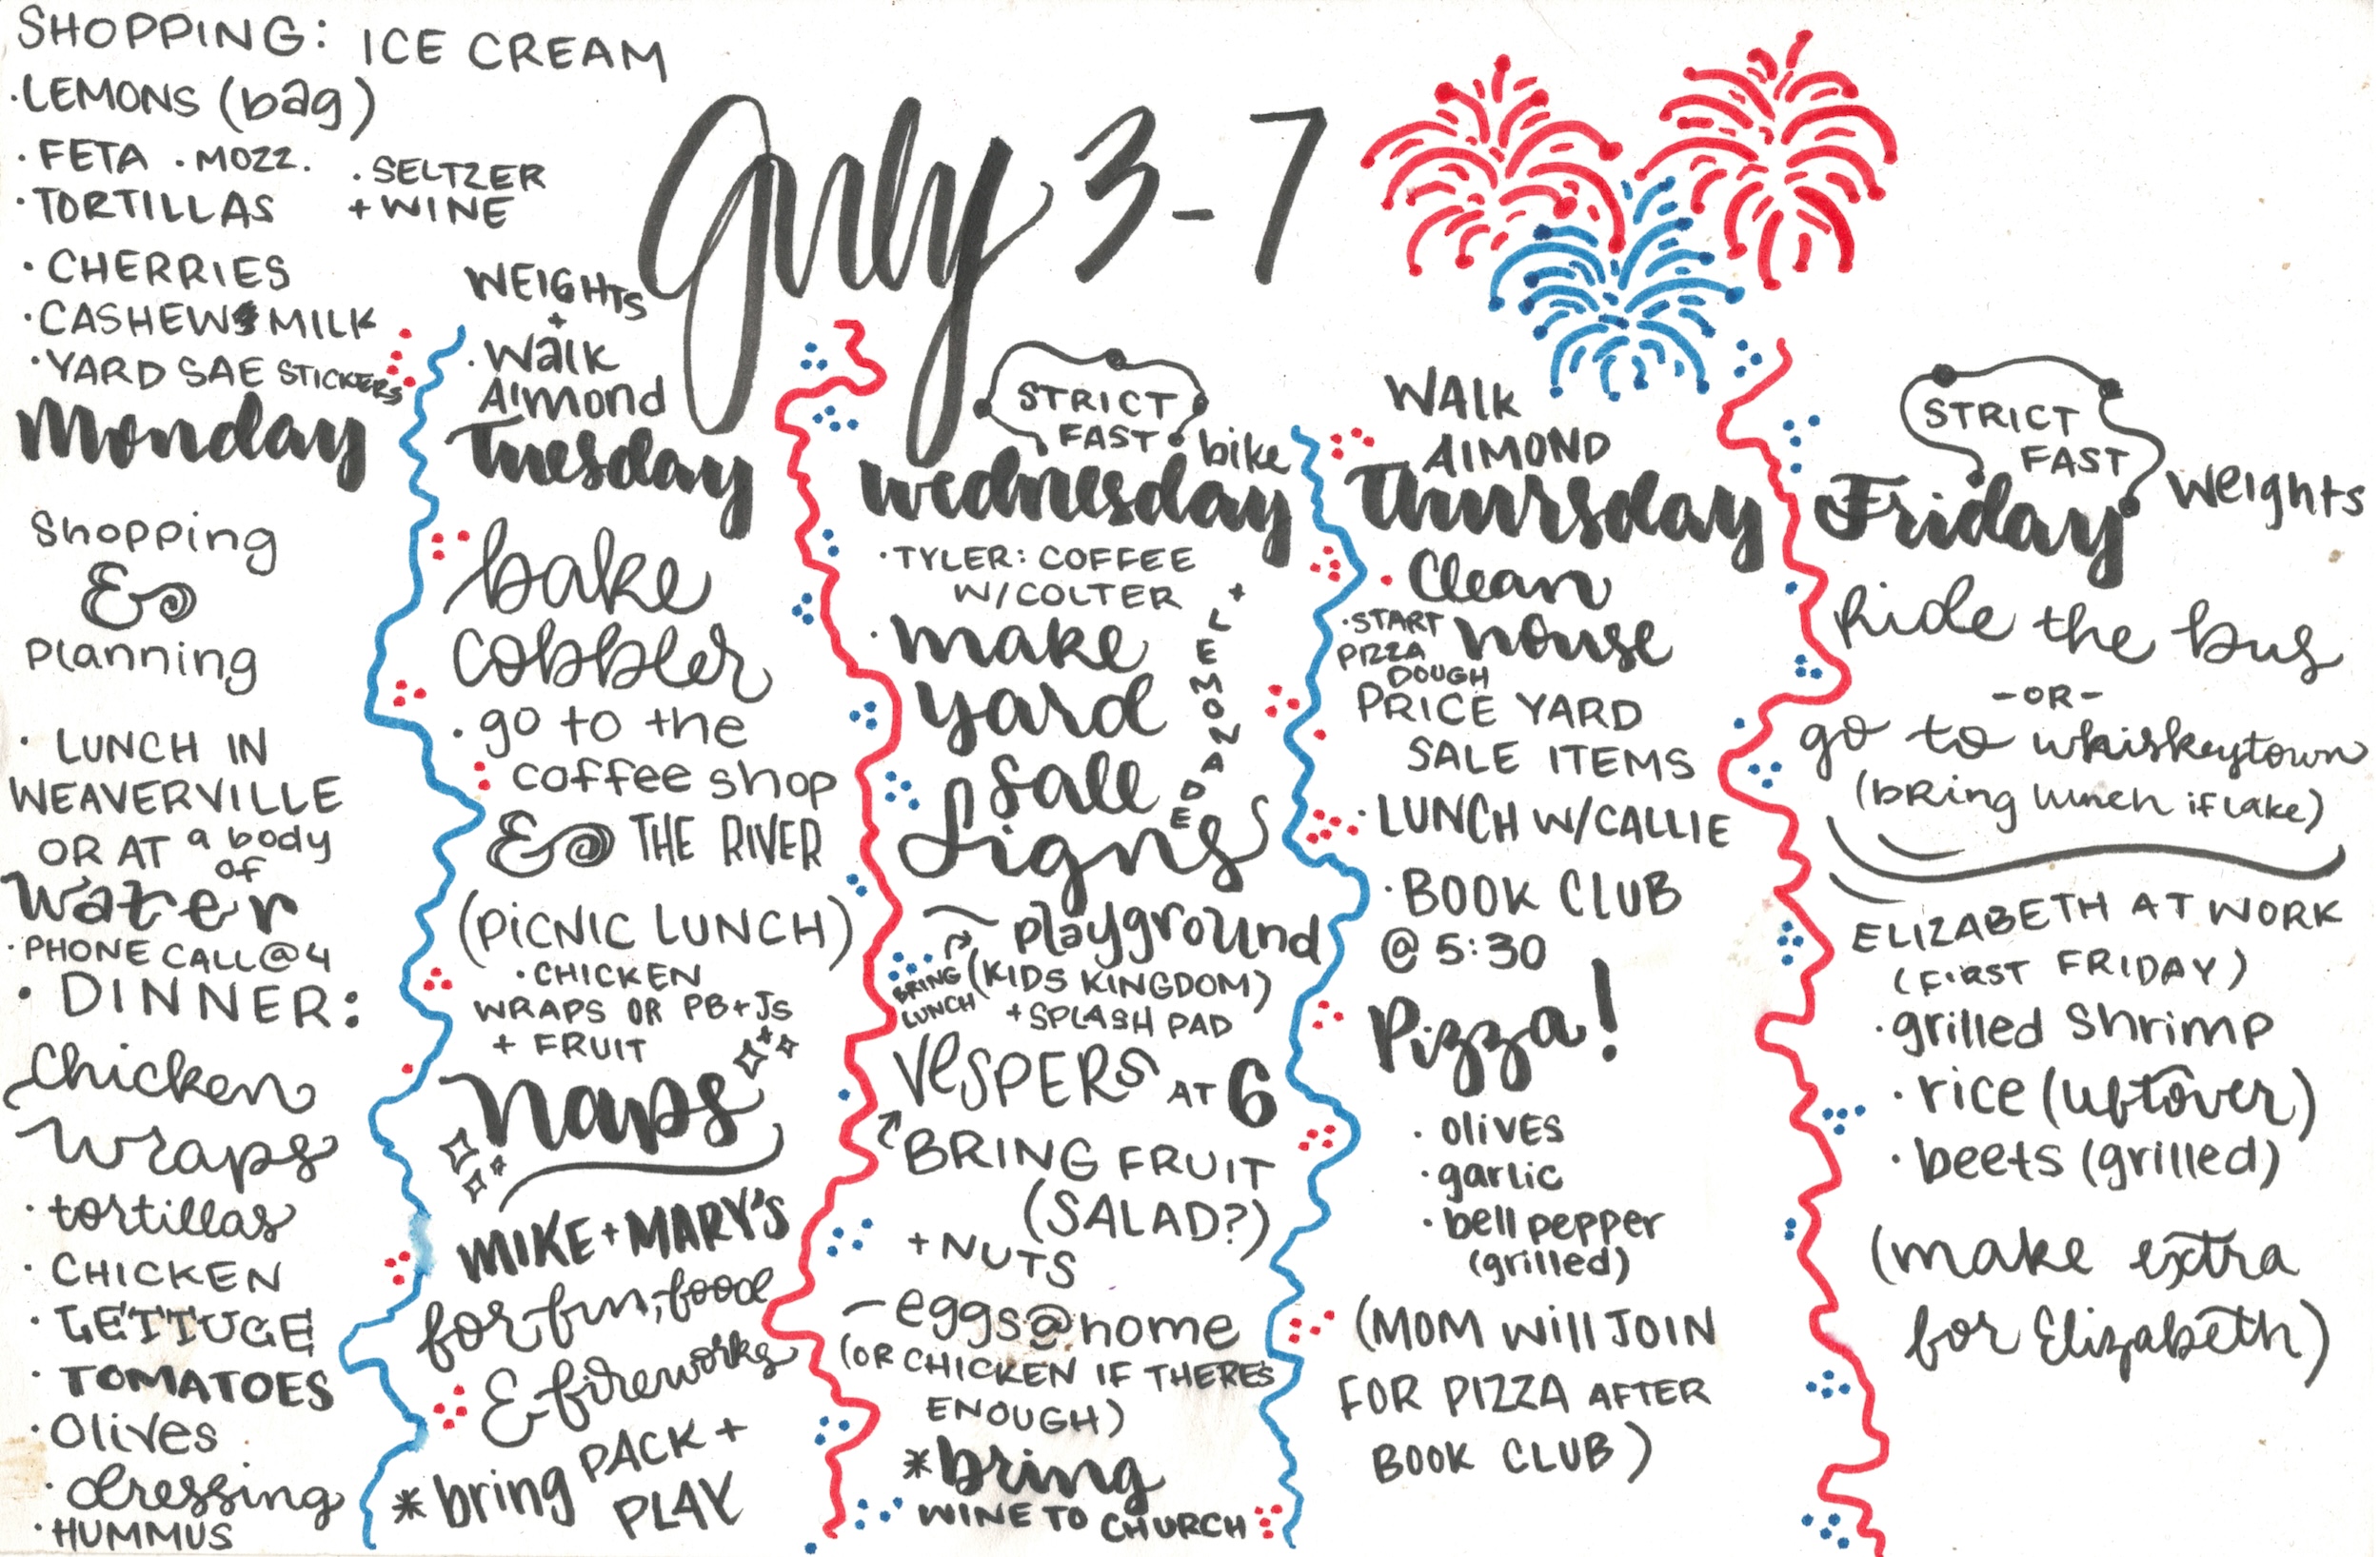 SHOPPING: ICE CREAM
·LEMONS (bag)
·FETA ·MOZZ.
·TORTILLAS
·SELTZER
+WINE
·CHERRIES
·CASHEW MILK
·YARD SAE STICKERS
July 3-7
Monday
Shopping
&
Planning
·LUNCH IN
WEAVERVILLE
OR AT a body
of
water
·PHONE CALL@4
·DINNER:
Chicken
wraps
·tortillas
·CHICKEN
·LETTUCE
·TOMATOES
·Olives
·dressing
·HUMMUS
WEIGHTS
+
·Walk
Almond
Tuesday
bake
cobbler
·go to the
coffee shop
& THE RIVER
(PICNIC LUNCH)
·CHICKEN
WRAPS OR PB+JS
+ FRUIT
Naps
MIKE+MARY'S
for fun, food
& fireworks
*bring PACK+
PLAY
STRICT
FAST
bike
wednesday
·TYLER: COFFEE
W/COLTER
·make
yard
sale
signs
+
LEMONADE
~playground
(KIDS KINGDOM)
+SPLASH PAD
BRING
LUNCH
VESPERS AT 6
BRING FRUIT
(SALAD?)
+NUTS
-eggs@home
(OR CHICKEN IF THERE'S
ENOUGH)
*bring
WINE TO CHURCH
WALK
AlMOND
Thursday
·Clean
house
·START
PIZZA
DOUGH
PRICE YARD
SALE ITEMS
·LUNCH W/CALLIE
·BOOK CLUB
@ 5:30
Pizza!
·olives
·garlic
·bell pepper
(grilled)
(MOM will JOIN
FOR PIZZA AFTER
BOOK CLUB)
STRICT
FAST
Weights
Friday
Ride the bus
-OR-
go to whiskeytown
(bring lunch if lake)
ELIZABETH AT WORK
(FIRST FRIDAY)
·grilled shrimp
·rice (leftover)
·beets (grilled)
(make extra
for Elizabeth)